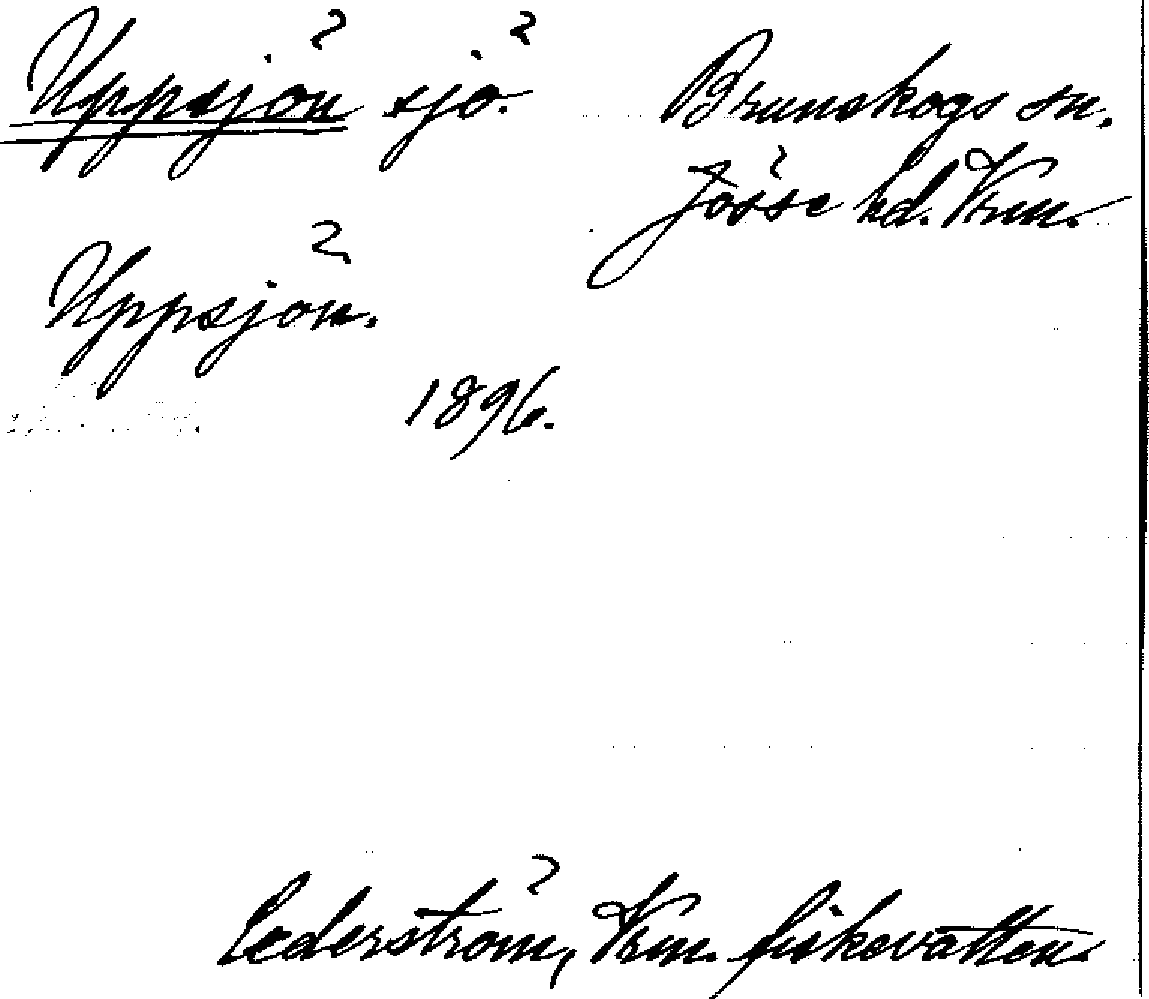 Uppsjön sjö. Brunskogs sn.
Jösse hd. Vrm.
Uppsjön.
1896.
Cederström, Vrm. fiskevatten.